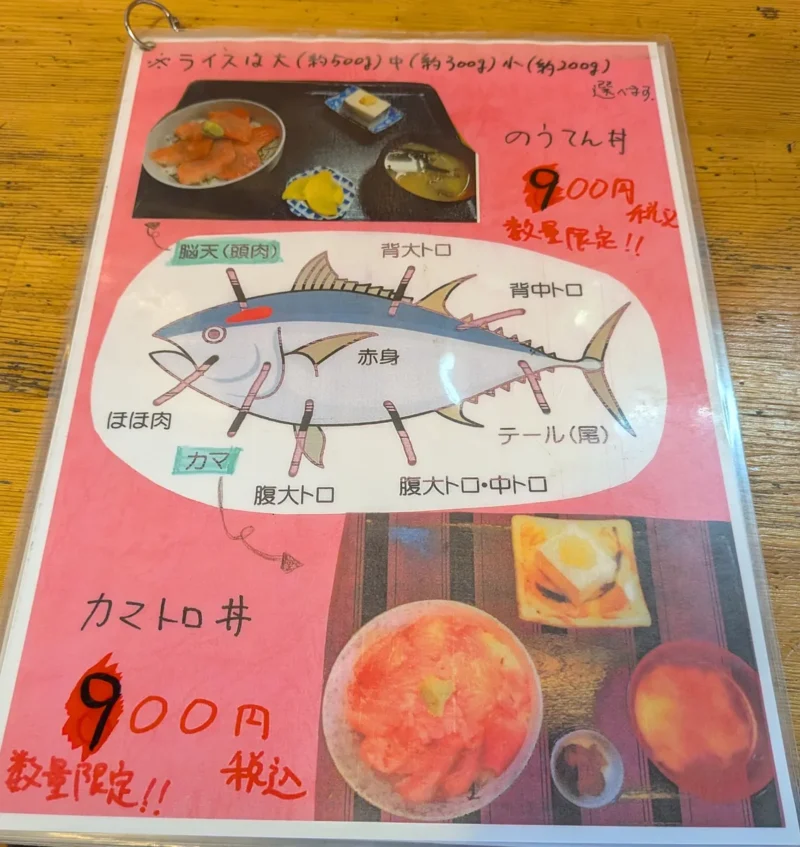 ※ライスは大(約500g)中(約300g)小(約200g)
選べます。
のうてん丼
900円
税込
数量限定!!
脳天(頭肉)
背大トロ
背中トロ
赤身
ほほ肉
テール(尾)
カマ
腹大トロ
腹大トロ・中トロ
カマトロ丼
900円
税込
数量限定!!